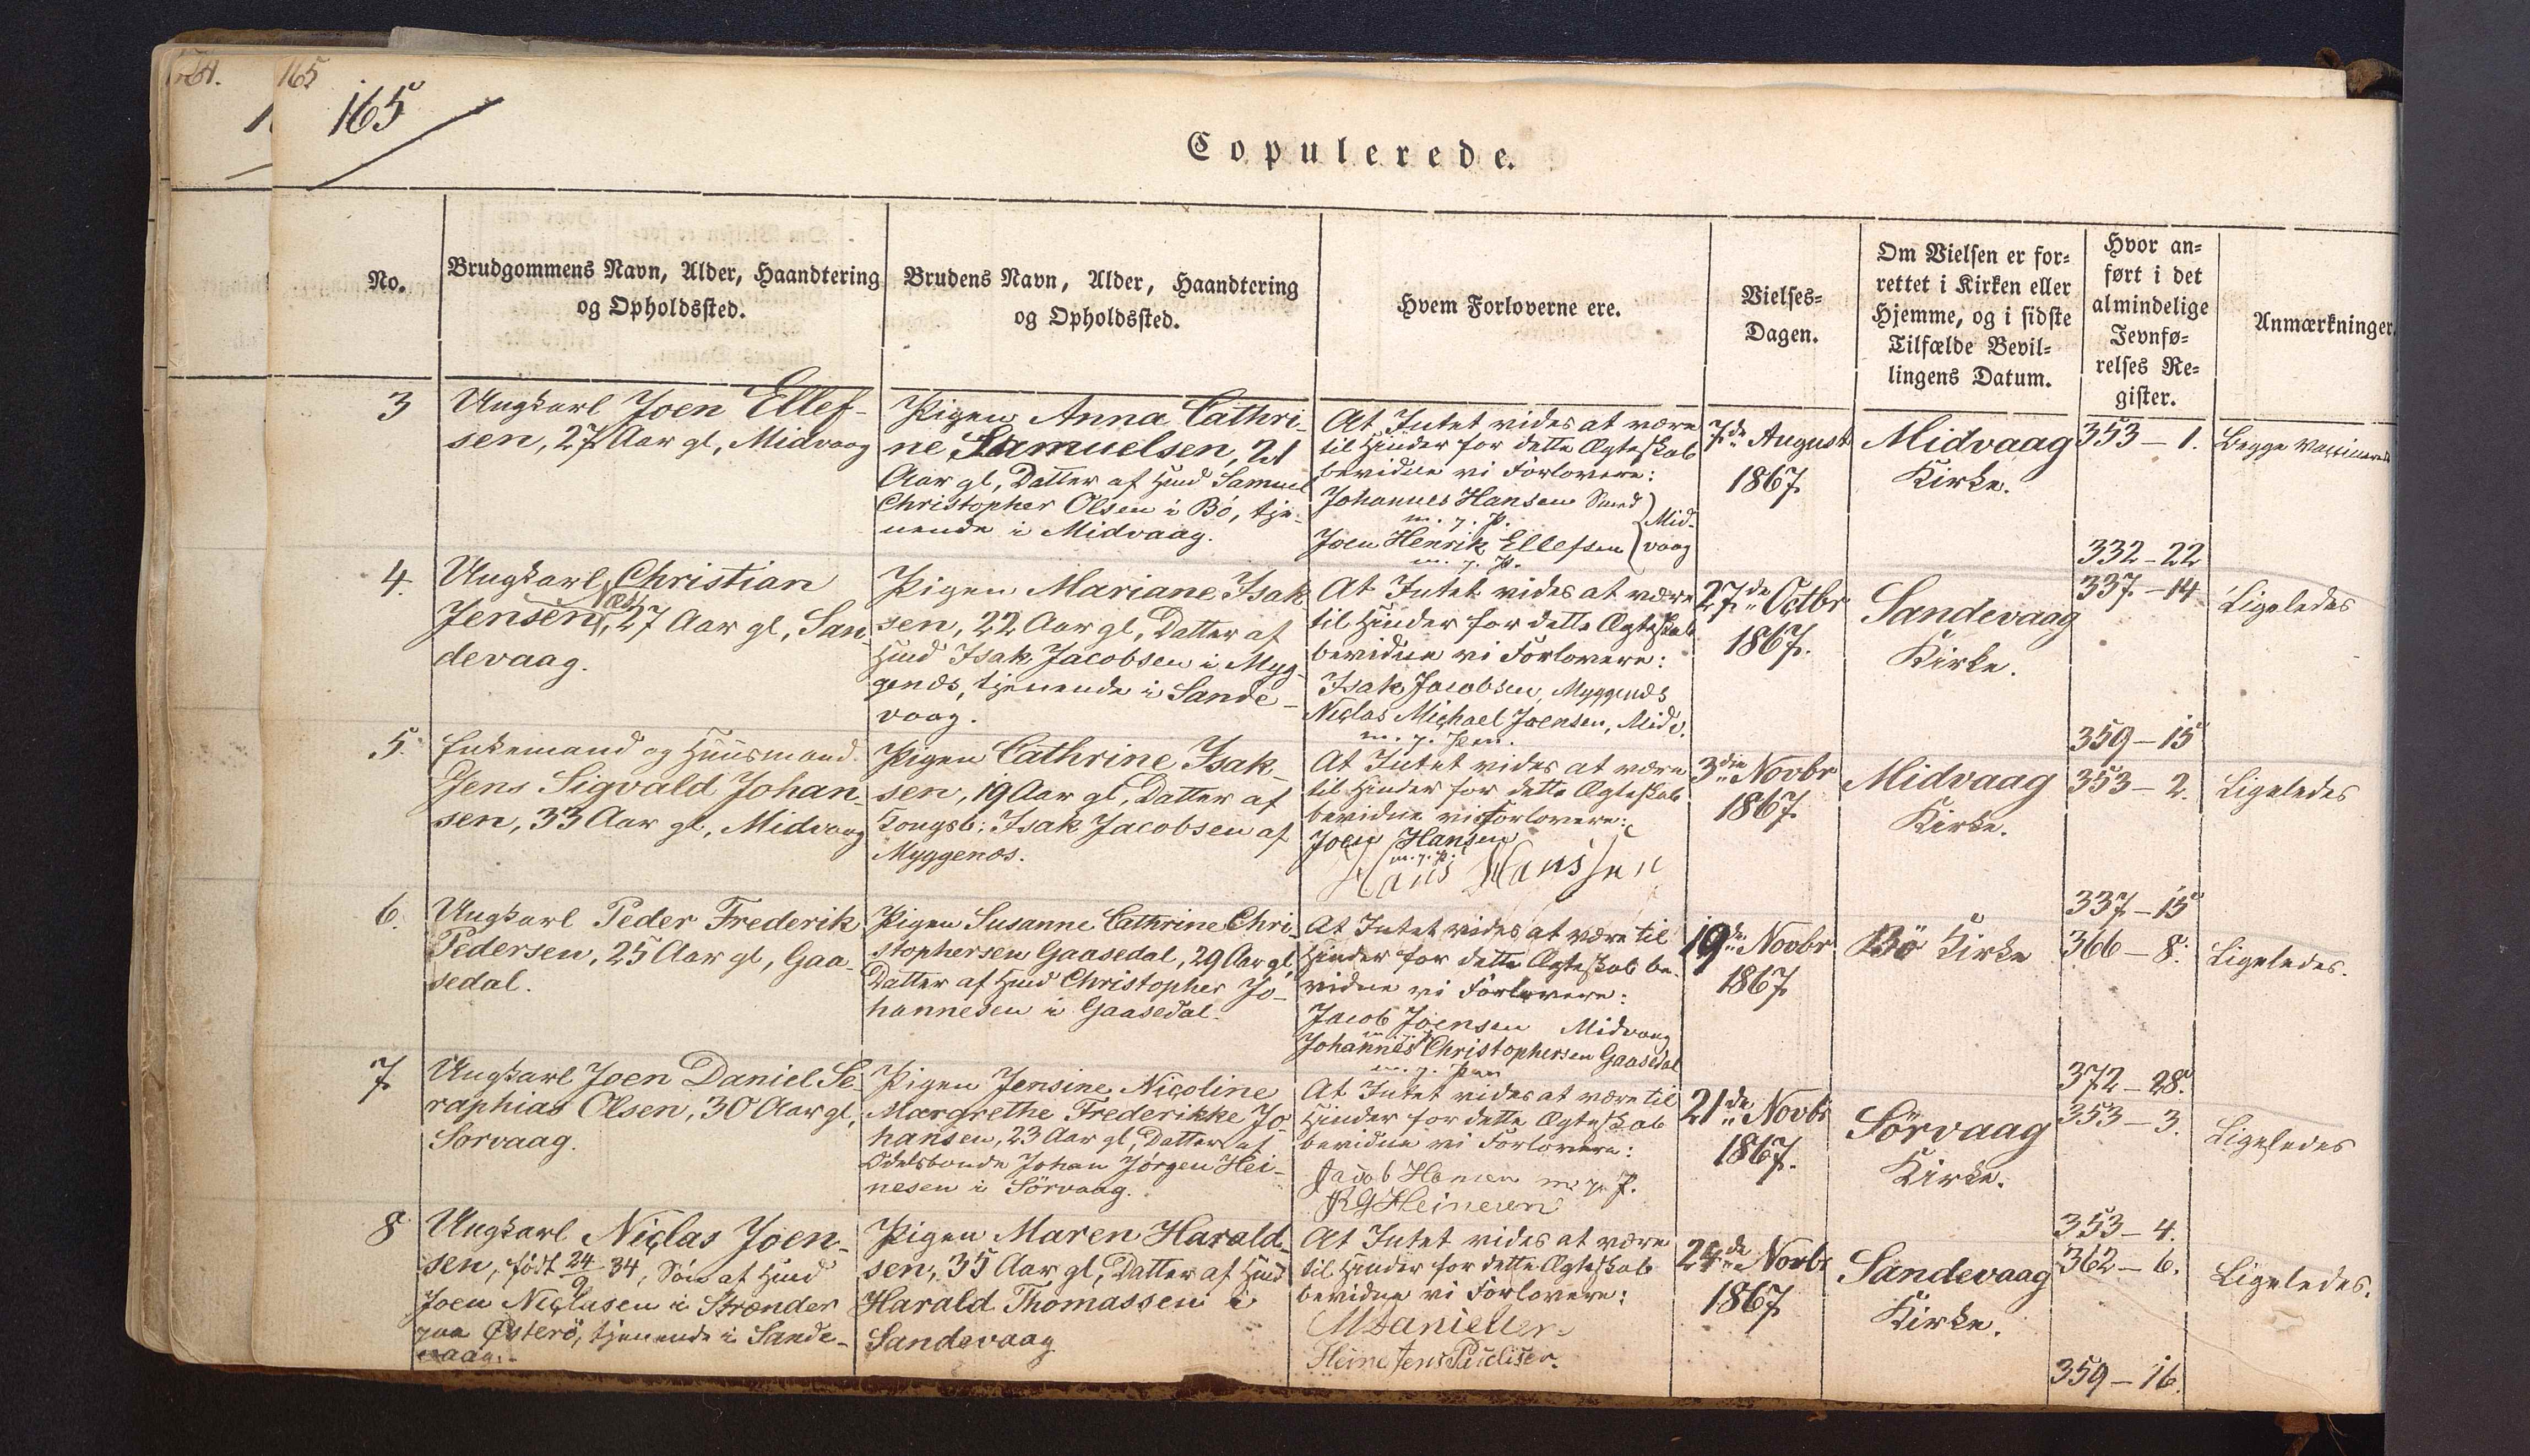 165
165
Copulerede.
No.
Brudgommens Navn, Alder, Haandtering
og Opholdssted.
Brudens Navn, Alder, Haandtering
og Opholdssted.
Hvem Forloverne ere.
Vielses-
Dagen.
Om Vielsen er for-
rettet i Kirken eller
Hjemme, og i sidste
Tilfælde Bevil-
lingens Datum.
Hvor an-
ført i det
almindelige
Jevnfø-
relses Re-
gister.
Anmærkninger.
3
Ungkarl Joen Ellef-
sen, 27 Aar gl, Midvaag
Pigen Anna Cathri-
ne Samuelsen, 21
Aar gl, Datter af Hmd Samuel
Christopher Olsen i Bö, tje-
nende i Midvaag.
At Intet vides at være
til Hinder for dette Ægteskab
bevidne vi Forlovere:
Johannes Hansen
m. p.
Joen Henrik Ellefsen
Mid-
vaag
7de August
1867.
Midvaag
Kirke.
353 - 1.
332 - 22
Begge
4.
Ungkarl Christian
Jensen Næs, 27 Aar gl, San-
devaag.
Pigen Mariane Isak-
sen, 22 Aar gl, Datter af
Hmd Isak Jacobsen i Myg-
genæs, tjenende i Sande-
vaag.
At Intet vides at være
til Hinder for dette Ægteskab
bevidne vi Forlovere:
Isak Jacobsen, Myggenæs
Niclas Michael Joensen, Midv.
27de Octbr
1867.
Sandevaag
Kirke.
337 - 14
359 - 15
Ligeledes
5.
Enkemand og Huusmand
Jens Sigvald Johan-
sen, 33 Aar gl, Midvaag
Pigen Cathrine Isak-
sen, 19 Aar gl, Datter af
Kongsb: Isak Jacobsen af
Myggenæs.
At Intet vides at være
til Hinder for dette Ægteskab
bevidne vi Forlovere:
Joen Hansen
Hans Hanssen
3die Novbr
1867.
Midvaag
Kirke.
353 - 2.
337 - 15
Ligeledes
6.
Ungkarl Peder Frederik
Pedersen, 25 Aar gl, Gaa-
sedal.
Pigen Susanne Cathrine Chri-
stophersen Gaasedal, 29 Aar gl,
Datter af Hmd Christopher Jo-
hannesen i Gaasedal.
At Intet vides at være til
Hinder for dette Ægteskab be-
vidne vi Forlovere:
Jacob Joensen Midvaag
Johannes Christophersen Gaasedal
19de Novbr
1867
Bö Kirke
366 - 8.
372 - 28.
Ligeledes.
7.
Ungkarl Joen Daniel Se-
raphias Olsen, 30 Aar gl,
Sorvaag.
Pigen Jensine Nicoline
Margrethe Frederikke Jo-
hansen, 23 Aar gl, Datter af
Odelsbonde Johan Jörgen Hei-
nesen i Sörvaag.
At Intet vides at være til
Hinder for dette Ægteskab
bevidne vi Forlovere:
Jacob Hansen
Heinesen
21de Novbr
1867.
Sörvaag
Kirke.
353 - 3.
353 - 4.
Ligeledes
8
Ungkarl Niclas Joen-
sen, födt 24/9 34, Sön af Hmd
Joen Niclasen i Strænder
paa Österö, tjenende i Sande-
vaag.
Pigen Maren Harald-
sen, 35 Aar gl, Datter af Hmd
Harald Thomassen i
Sandevaag
At Intet vides at være
til Hinder for dette Ægteskab
bevidne vi Forlovere:
24de Novbr
1867
Sandevaag
Kirke.
362 - 6.
359 - 16.
Ligeledes.